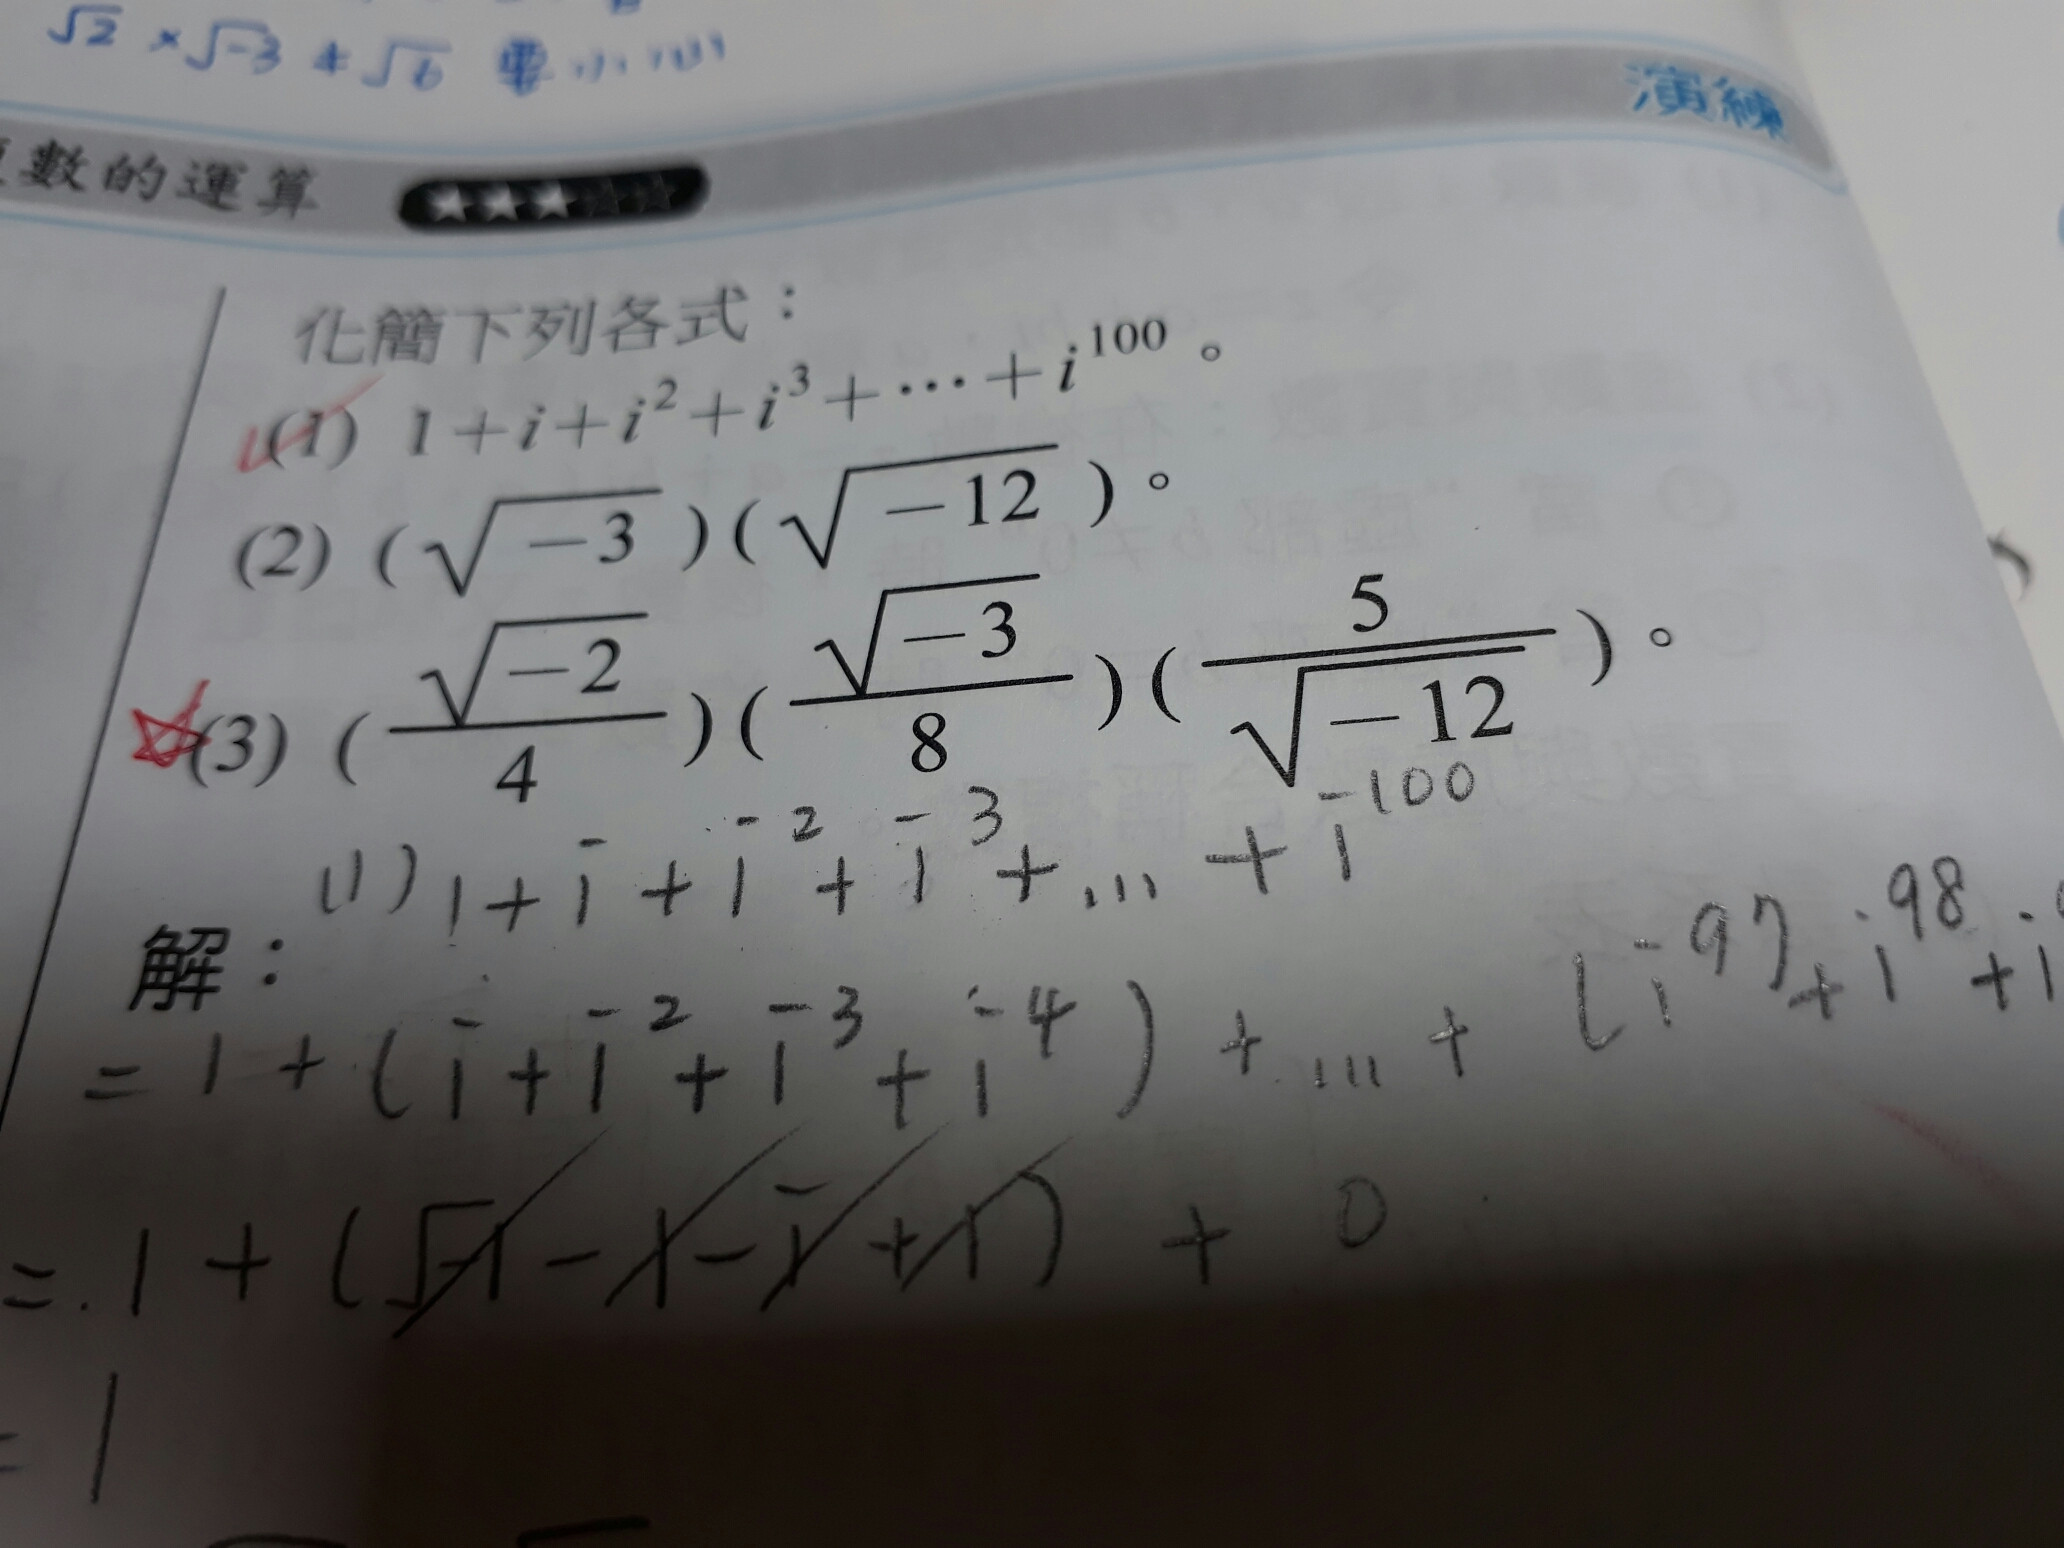 √2 × √-3 ≠ √6 要小心
數的運算 ★★★☆☆ 演練
化簡下列各式：
(1) 1+i+i²+i³+⋯+i¹⁰⁰。
(2) (√-3)(√-12)。
(3) (√-2/4)(√-3/8)(5/√-12)。
(1) 1+i+i²+i³+...+i¹⁰⁰
解：
=1+(i+i²+i³+i⁴)+...+(i⁹⁷+i⁹⁸+i
=1+(√-1-1-i+1)+0
=1